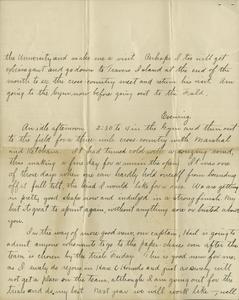 the University and make me a visit. Perhaps I too will get
extravagant and go down to Travers Island at the end of the
month to see the cross country meet and return his visit. Am
going to the Gym now before going out to the field.
Evening.
An idle afternoon 2:30 to 4 in the Gym and then out
to the field for a three mile cross country with Marshall
and Ketcham. It had turned cold with a strong wind,
thus making a fine day for a run in the open. It was one
of those days when one can hardly hold oneself from bounding
off at full tilt, the kind I would like for a race. We are getting
in pretty good shape now and indulged in a strong finish.
but it is great to spurt again, without anything sore or busted about
you.
In the way of more good news, our captain, is going to
admit anyone who wants to go to the paper chase even after the
team is chosen by the trials Friday. This is good news for me,
as I may do represent and just as surely will
not get a place on the team, although I am going out for the
trials and do my best. Next year we will work like